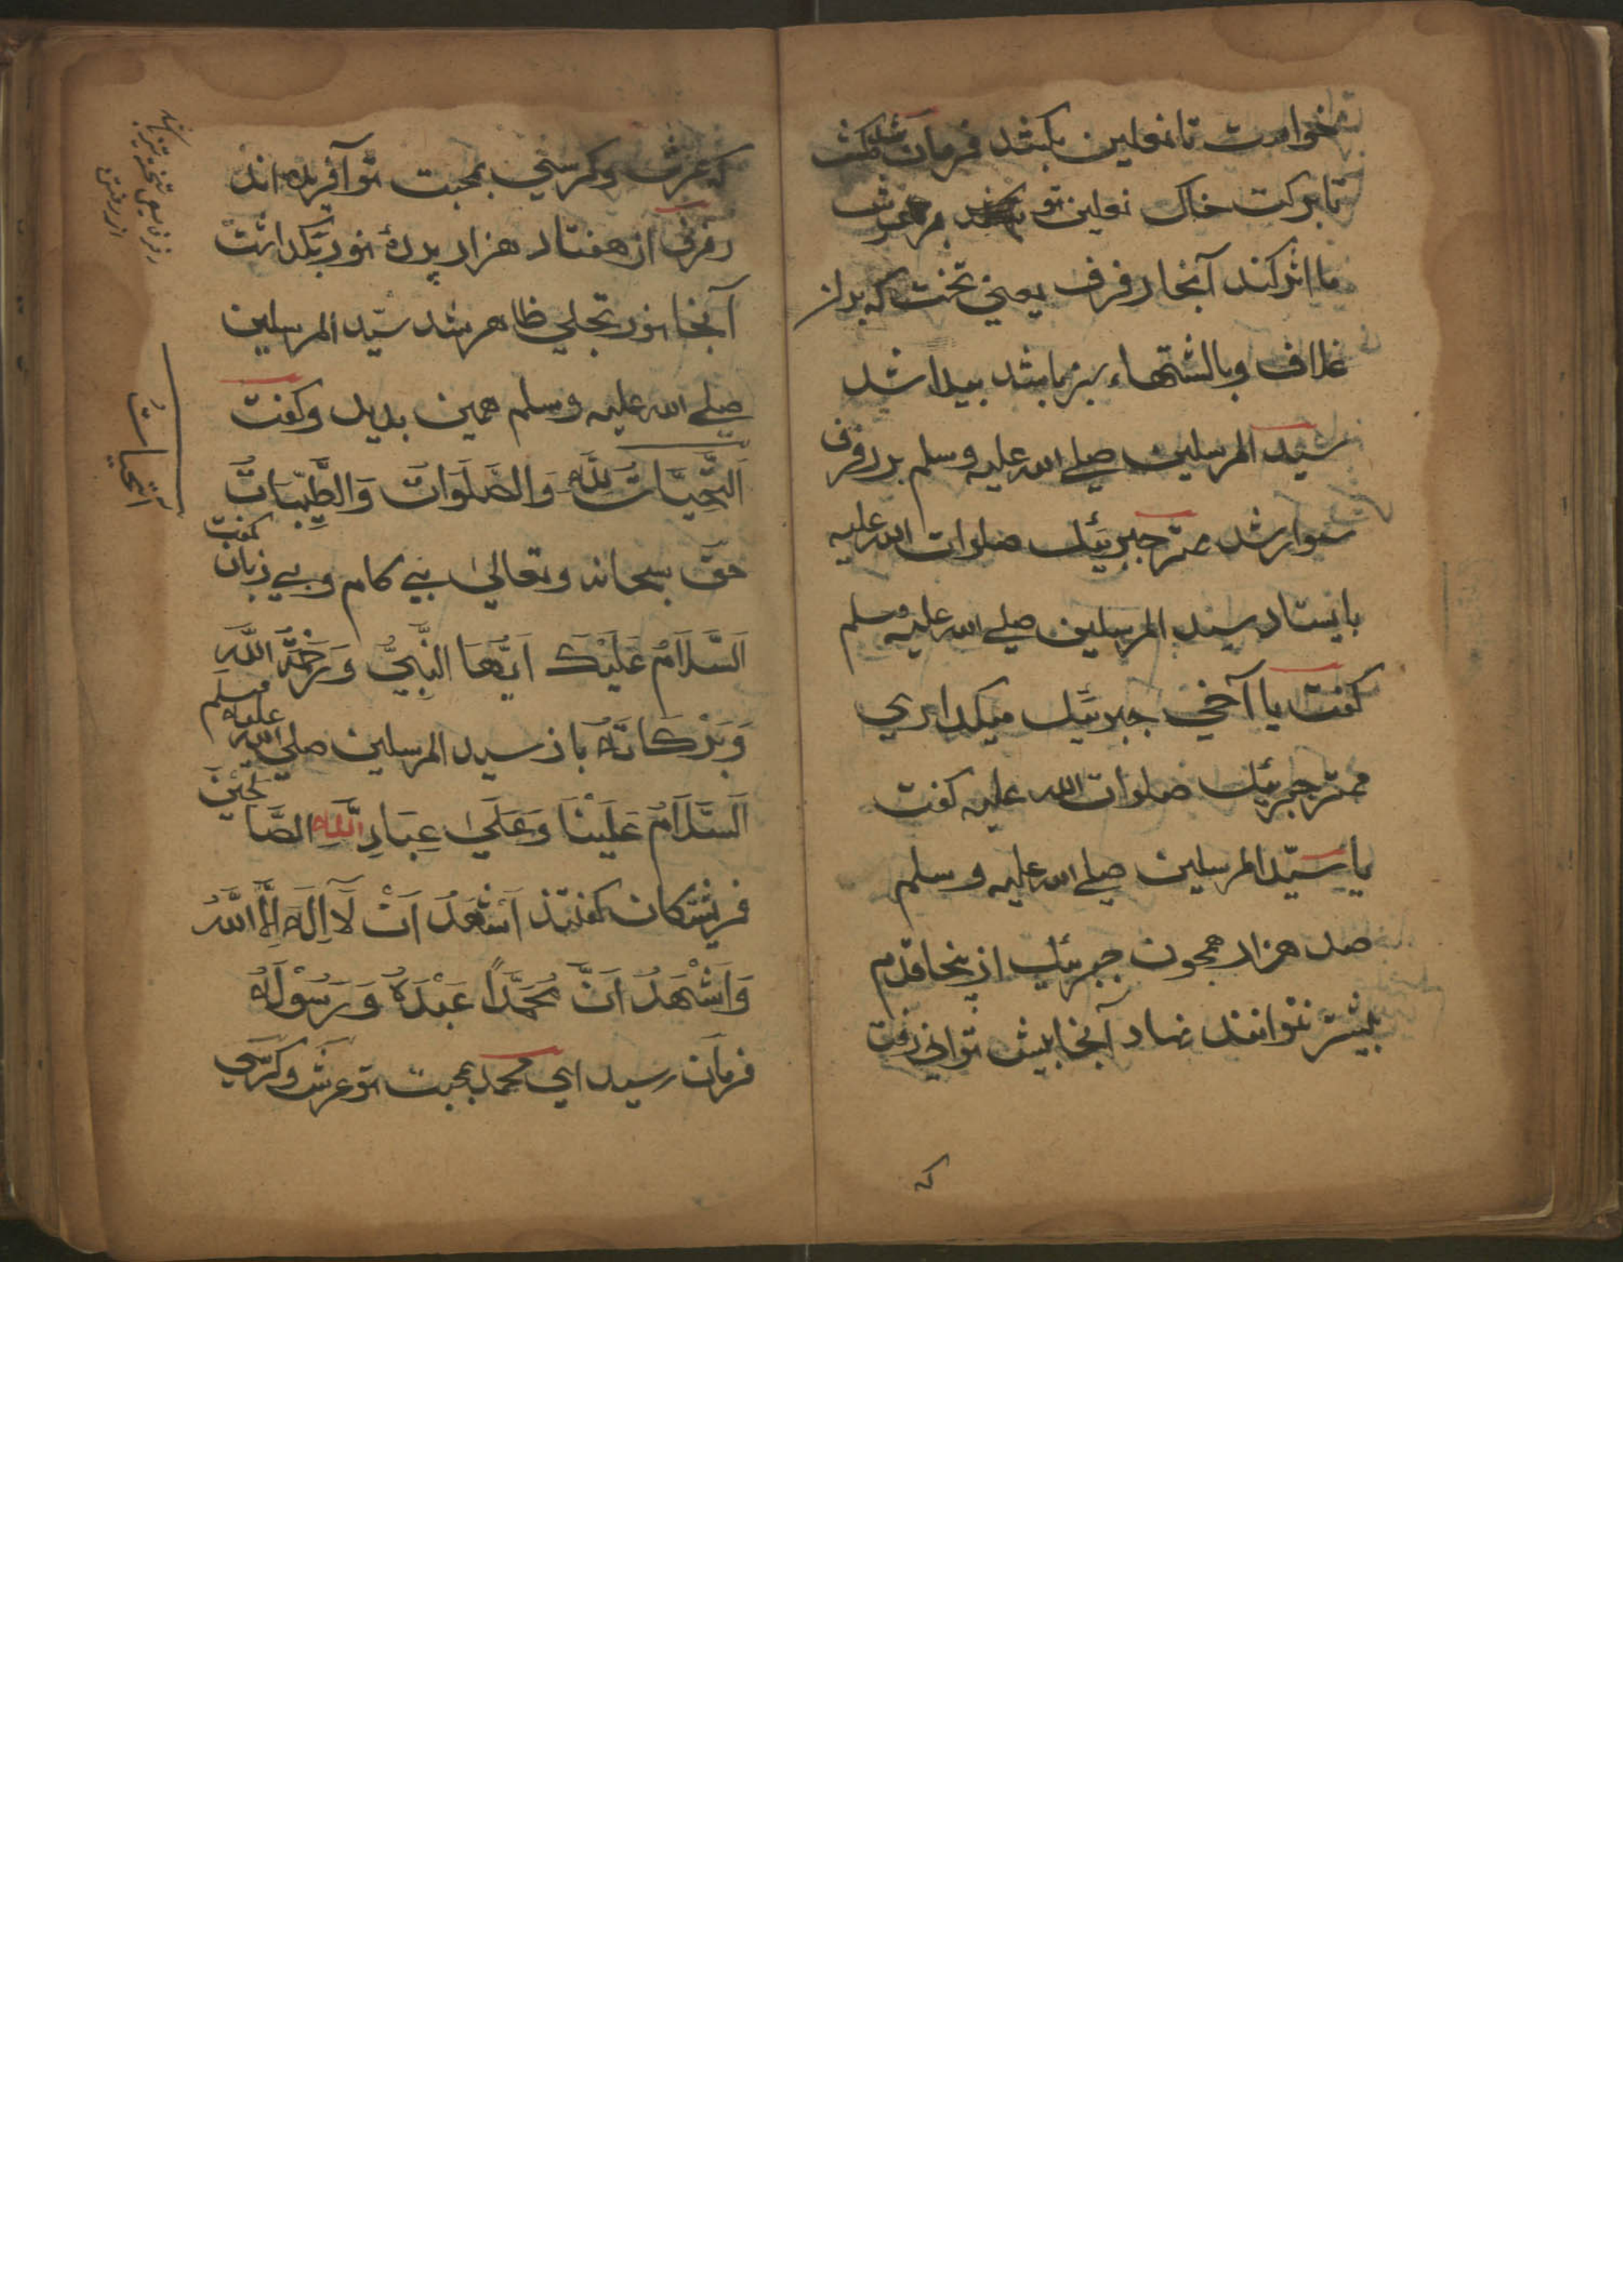 خواست تا نعلین بکشد فرمان شد مکش
تا برکت خاک نعلین تو بر عرش
ما اثر کند آنجا رفرف یعنی تخت که بر از
غلاف و بالشتهاء سبز باشد پیدا شد
سید المرسلین صلے الله علیه وسلم بر رفرف
سوار شد مهتر جبرئیل صلوات الله علیه
بایستاد سید المرسلین صلے الله علیه وسلم
گفت یا اخی جبرئیل میگذاری
مهتر جبرئیل صلوات الله علیه گفت
یا سیّد المرسلین صلے الله علیه وسلم
صد هزار همچون جبرئیل از ینجا قدم
بیشتر نتوانند نهاد آنجا بیش توانی رفت
که
که عرش و کرسی بمحبت تو آفریده اند
رفرف از هفتاد هزار پردهٔ نور بگذاشت
آنجا نور تجلی ظاهر شد سیّد المرسلین
صلے الله علیه وسلم همین بدید و گفت
اَلتَّحِیَّاتُ لِلّٰهِ وَالصَّلَوَاتُ وَالطَّیِّبَاتُ
حق سبحانه وتعالیٰ بی کام و بی زبان گفت
اَلسَّلَامُ عَلَیْکَ اَیُّهَا النَّبِیُّ وَرَحْمَةُ اللّٰهِ
وَبَرَکَاتُهُ باز سید المرسلین صلی الله علیه وسلم
اَلسَّلَامُ عَلَیْنَا وَعَلیٰ عِبَادِ اللّٰهِ الصَّالِحِیْنَ
فریشتکان گفتند اَشْهَدُ اَنْ لَا اِلٰهَ اِلَّا اللّٰهُ
وَاَشْهَدُ اَنَّ مُحَمَّدًا عَبْدُهُ وَرَسُوْلُهُ
فرمان رسید ای محمد بمحبت تو عرش و کرسی
التحیات